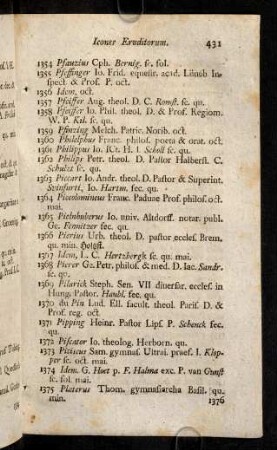 Icones Eruditorum. 431
1354 Pfautzius Cph. Bernig. sc. fol.
1355 Pfeffinger Io. Frid. equestr. acad. Lüneb In-
spect & Prof. P. oct.
1356 Idem, oct.
1357 Pfeiffer Aug. theol. D. C. Romst. sc. qu.
1358 Pfeiffer Io. Phil. theol. D. & Prof. Regiom.
W. P. Kil. sc. qu.
1359 Pfinzing Melch. Patric. Norib. oct.
1360 Philelphus Franc. philos. poeta & orat. oct.
1361 Philippus Io. Rct. H. I. Scholl sc. qu.
1362 Philips Petr. theol. D. Pastor Halberst. C.
Schultz sc. qu.
1363 Piccart Io. Andr. theol. D. Pastor & Superint.
Svinfurti, Io. Hartm. sec. qu.
1364 Piccolomineus Franc. Paduae Prof. philos. oct.
mai.
1365 Piehnhuberus Io. univ. Altdorff. notar. publ.
Ge. Fennitzer sec. qu.
1366 Pierius Urb. theol. D. pastor eccles. Brem.
qu. min. Holzst.
1367 Idem, L. C. Hertzbergk sc. qu. mai.
1368 Pierer Ge. Petr. philos. & med. D. Iac. Sandr.
sc. qu.
1369 Pilarick Steph. Sen. VII diuersar. eccles. in
Hung. Pastor. Haubl. sec. qu.
1370 du Pin Lud. Ell. facult. theol. Paris. D. &
Prof. reg. oct.
1371 Pipping Heinr. Pastor Lips. P. Schenck sec.
qu.
1372 Piscator Io. theolog. Herborn. qu.
1373 Pitiscus Sam. gymnas. Ultrai. praef. I. Klop-
per sc. oct. mai.
1374 Idem. G. Hoet p. F. Halma exc. P. van Gunst
sc. fol. mai.
1375 Platerus Thom. gymnasiarcha Basil. qu.
min.
1376